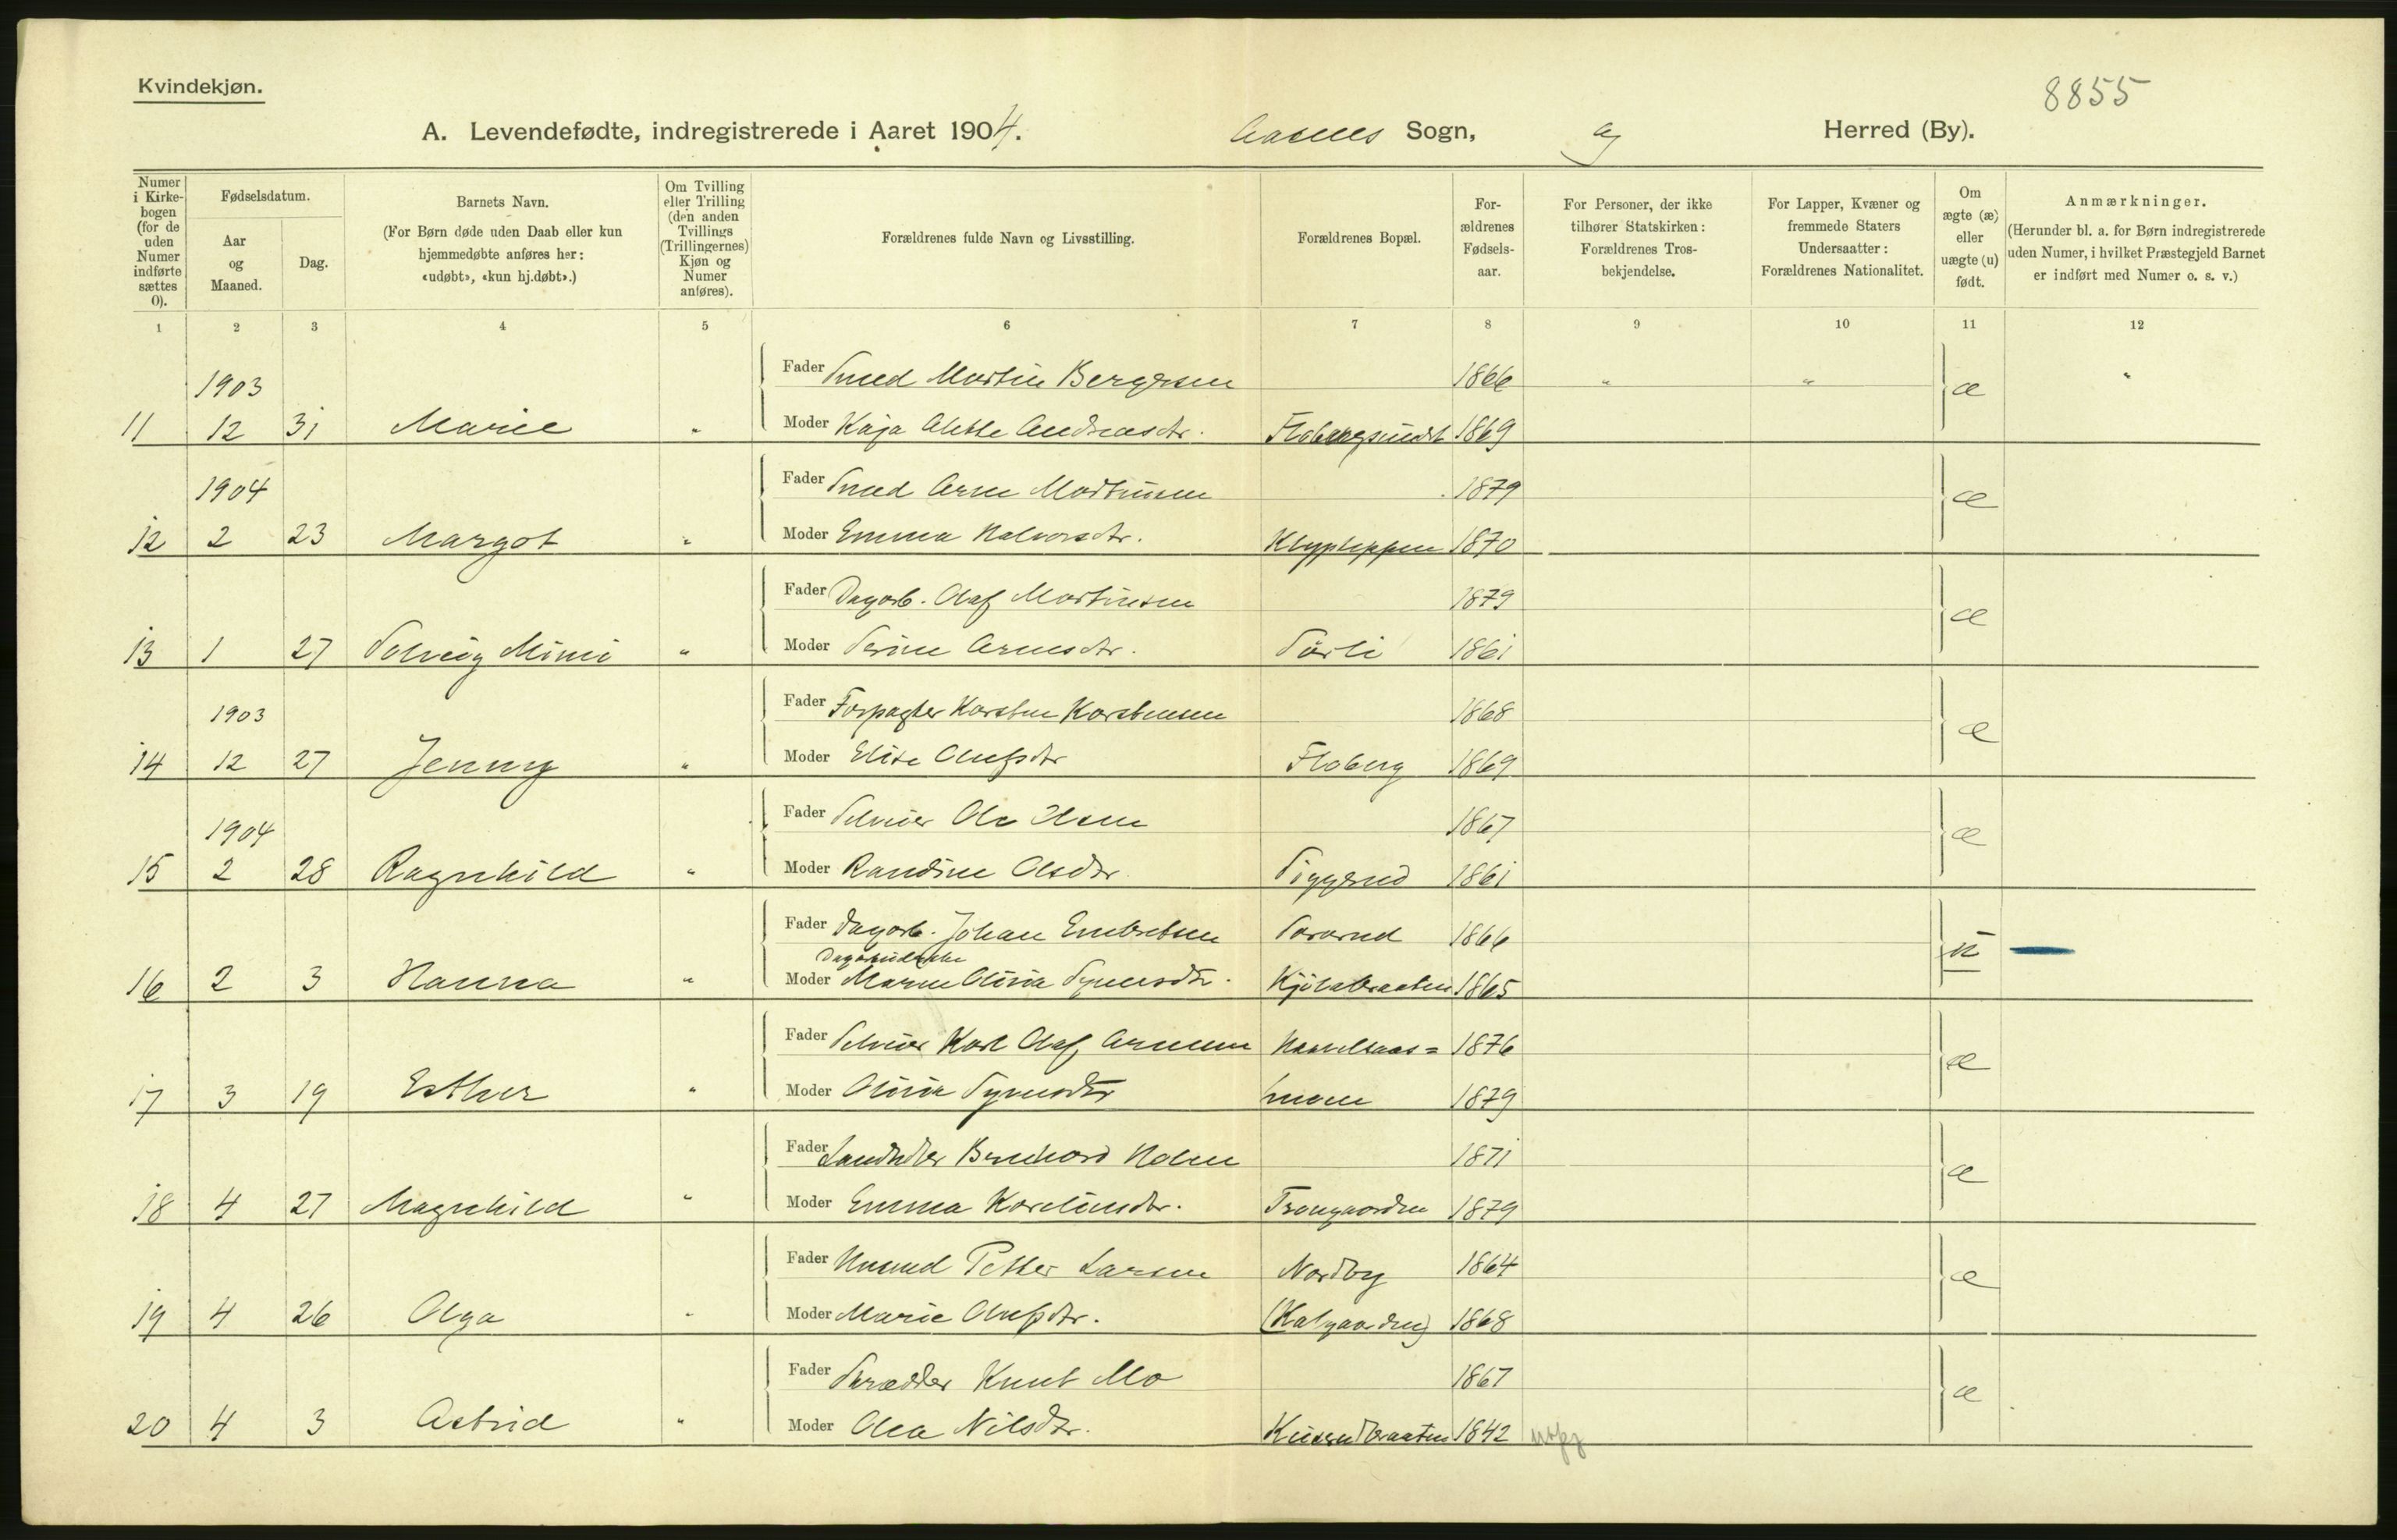 Kvindekjøn.
8855
A. Levendefødte, indregistrerede i Aaret 1904. Aasnes Sogn, Herred (By).
Numer i Kirkebogen (for de uden Numer indførte sættes 0).
Fødselsdatum.
Aar og Maaned.
Dag.
Barnets Navn.
(For Børn døde uden Daab eller kun hjemmedøbte anføres her: «udøbt», «kun hj.døbt».)
Om Tvilling eller Trilling (den anden Tvillings (Trillingernes) Kjøn og Numer anføres).
Forældrenes fulde Navn og Livsstilling.
Forældrenes Bopæl.
Forældrenes Fødselsaar.
For Personer, der ikke tilhører Statskirken: Forældrenes Trosbekjendelse.
For Lapper, Kvæner og fremmede Staters Undersaatter: Forældrenes Nationalitet.
Om ægte (æ) eller uægte (u) født.
Anmærkninger.
(Herunder bl. a. for Børn indregistrerede uden Numer, i hvilket Præstegjeld Barnet er indført med Numer o. s. v.)
1 2 3 4 5 6 7 8 9 10 11 12
1903 Fader Smed Martin Bergersen 1866 " " æ "
11 12 31 Marie " Moder Kaja Alette Andreasdtr. 1869
1904 Fader Smed Arne Martinsen 1879 æ
12 2 23 Margot " Moder Emma Halvorsdtr. Klypleppen 1870
Fader Dagarb. Olaf Martinsen 1879 æ
13 1 27 Solveig Mimi " Moder Serine Arnesdtr. Sørli 1861
1903 Fader Forpagter Karsten Karstensen 1868 æ
14 12 27 Jenny " Moder Elise Olufsdtr Floberg 1869
1904 Fader Selveier Ole Olsen 1867 æ
15 2 28 Ragnhild " Moder Randine Olsdtr. Siggerud 1861
Fader Dagarb. Johan Embretsen Sorerud 1866 u
16 2 3 Hanna " Moder Maren Olivia Syversdtr. Kjölabraaten 1865
Fader Selveier Karl Olaf Arnesen 1876 æ
17 3 19 Esther " Moder Olivia Syversdtr moen 1879
Fader Landhdler Bernhard Holm 1871 æ
18 4 27 Magnhild " Moder Emma Karelius dtr. Trangaarden 1879
Fader Husmd Petter Larsen Nordby 1864 æ
19 4 26 Olga " Moder Marie Olufsdtr. (Kalgaarden) 1868
Fader Skrædder Knut Mo 1867 æ
20 4 3 Astrid " Moder Olea Nilsdtr. 1842